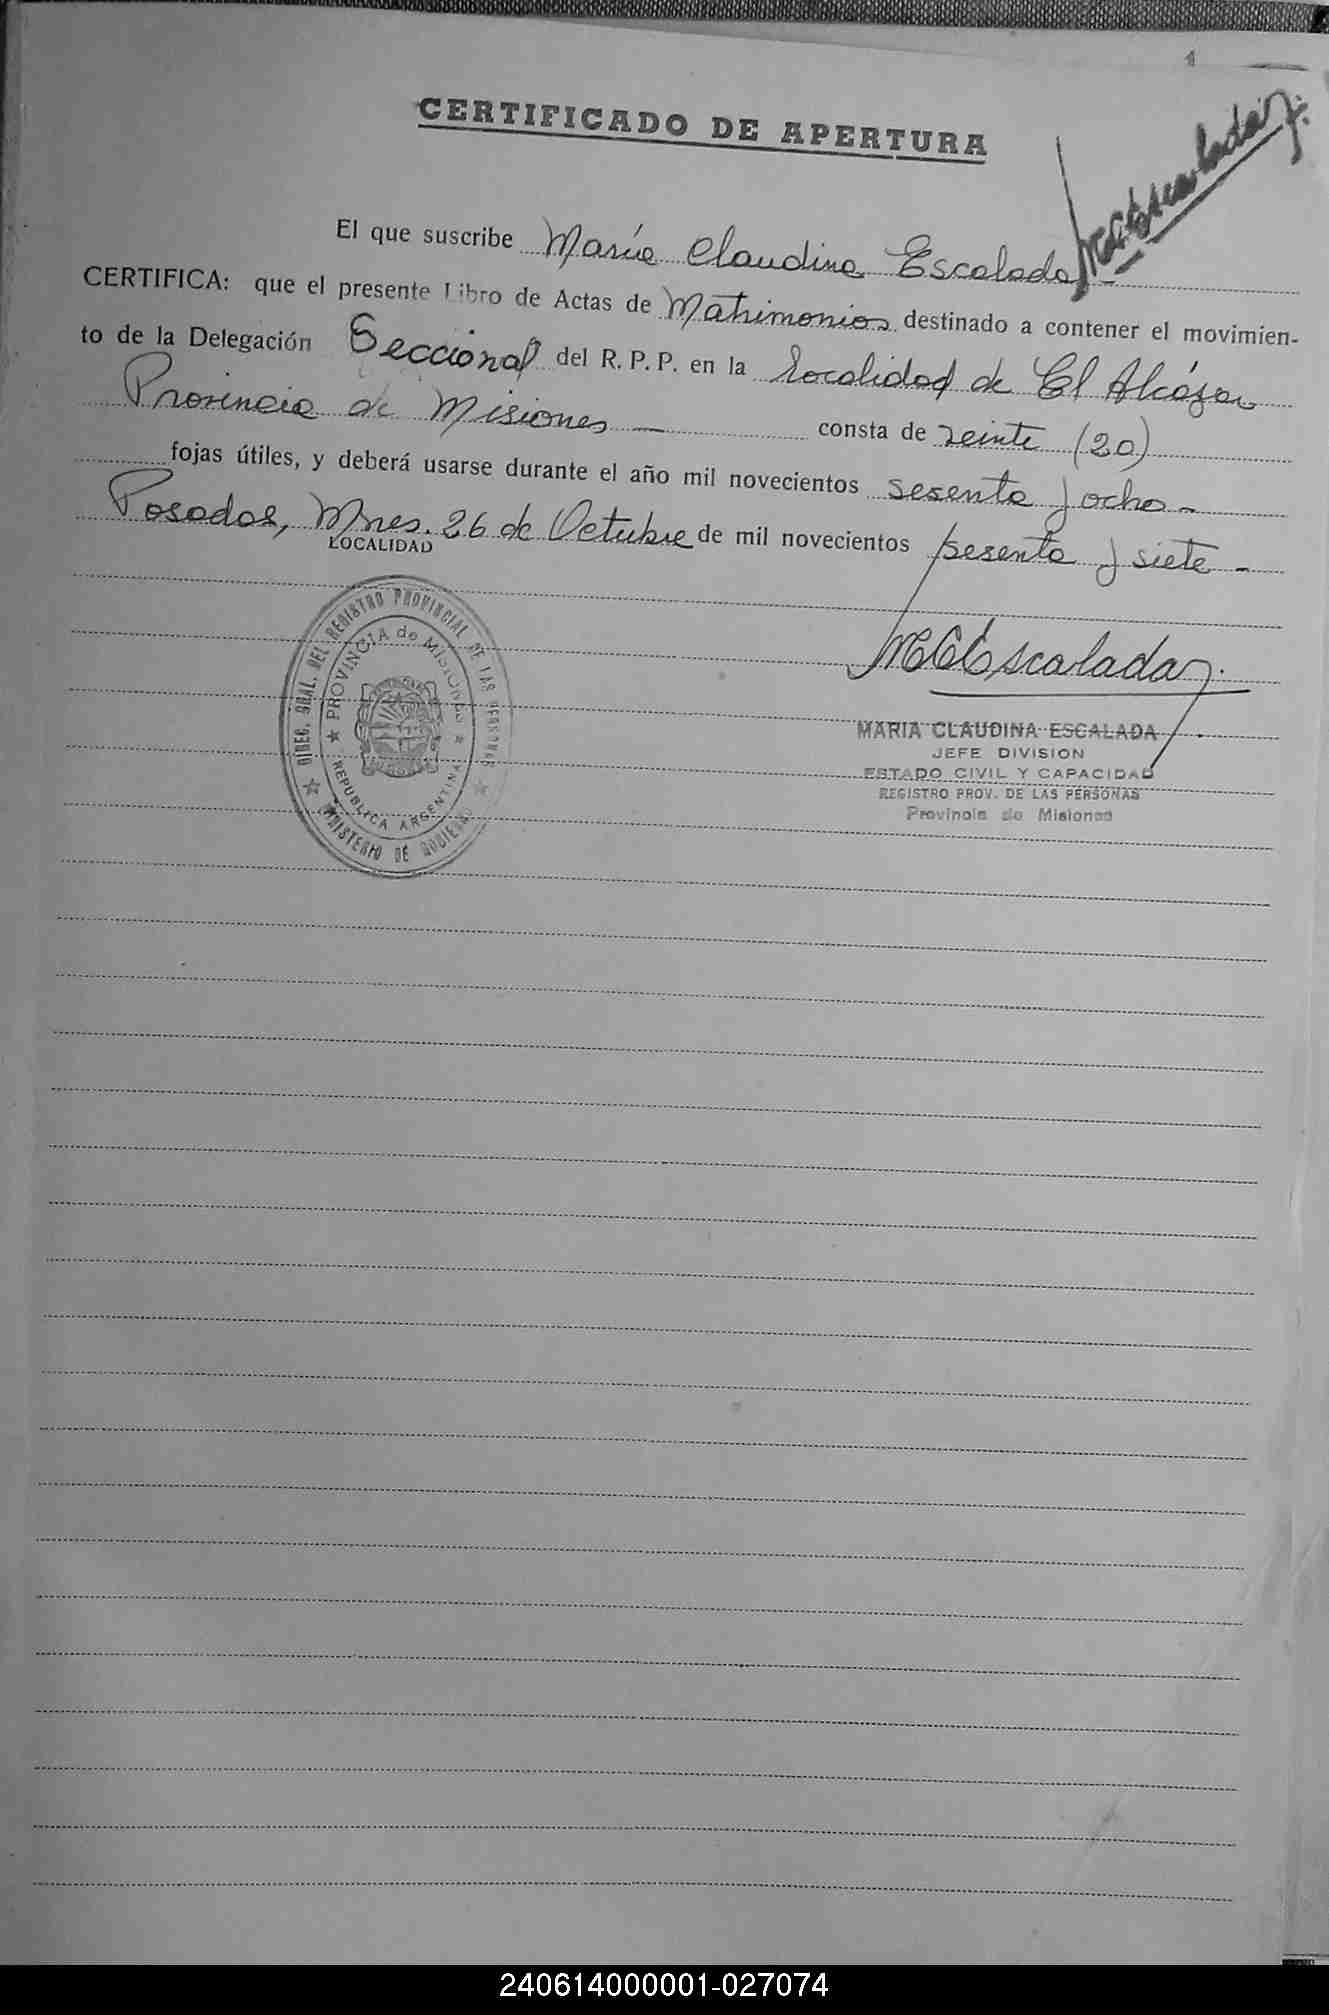 1
CERTIFICADO DE APERTURA
MCEscalada
El que suscribe María Claudina Escalada
CERTIFICA: que el presente Libro de Actas de Matrimonios destinado a contener el movimien-
to de la Delegación Seccional del R. P. P. en la Localidad de El Alcázar
Provincia de Misiones — consta de veinte (20)
fojas útiles, y deberá usarse durante el año mil novecientos sesenta y ocho -
Posadas, Mnes. 26 de Octubre de mil novecientos sesenta y siete -
LOCALIDAD
MCEscalada
DIREC. GRAL. DEL REGISTRO PROVINCIAL DE LAS PERSONAS
PROVINCIA de MISIONES
REPUBLICA ARGENTINA
MINISTERIO DE GOBIERNO
MARIA CLAUDINA ESCALADA
JEFE DIVISION
ESTADO CIVIL Y CAPACIDAD
REGISTRO PROV. DE LAS PERSONAS
Provincia de Misiones
240614000001-027074